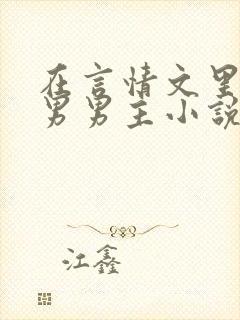 在言情文里
男男主小說
江鑫